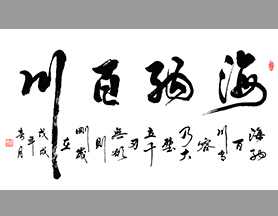 海納百川
海納
百
川有
容
乃大
壁
立千
仞
無欲
則
剛歲
在
戊戌
年
春月